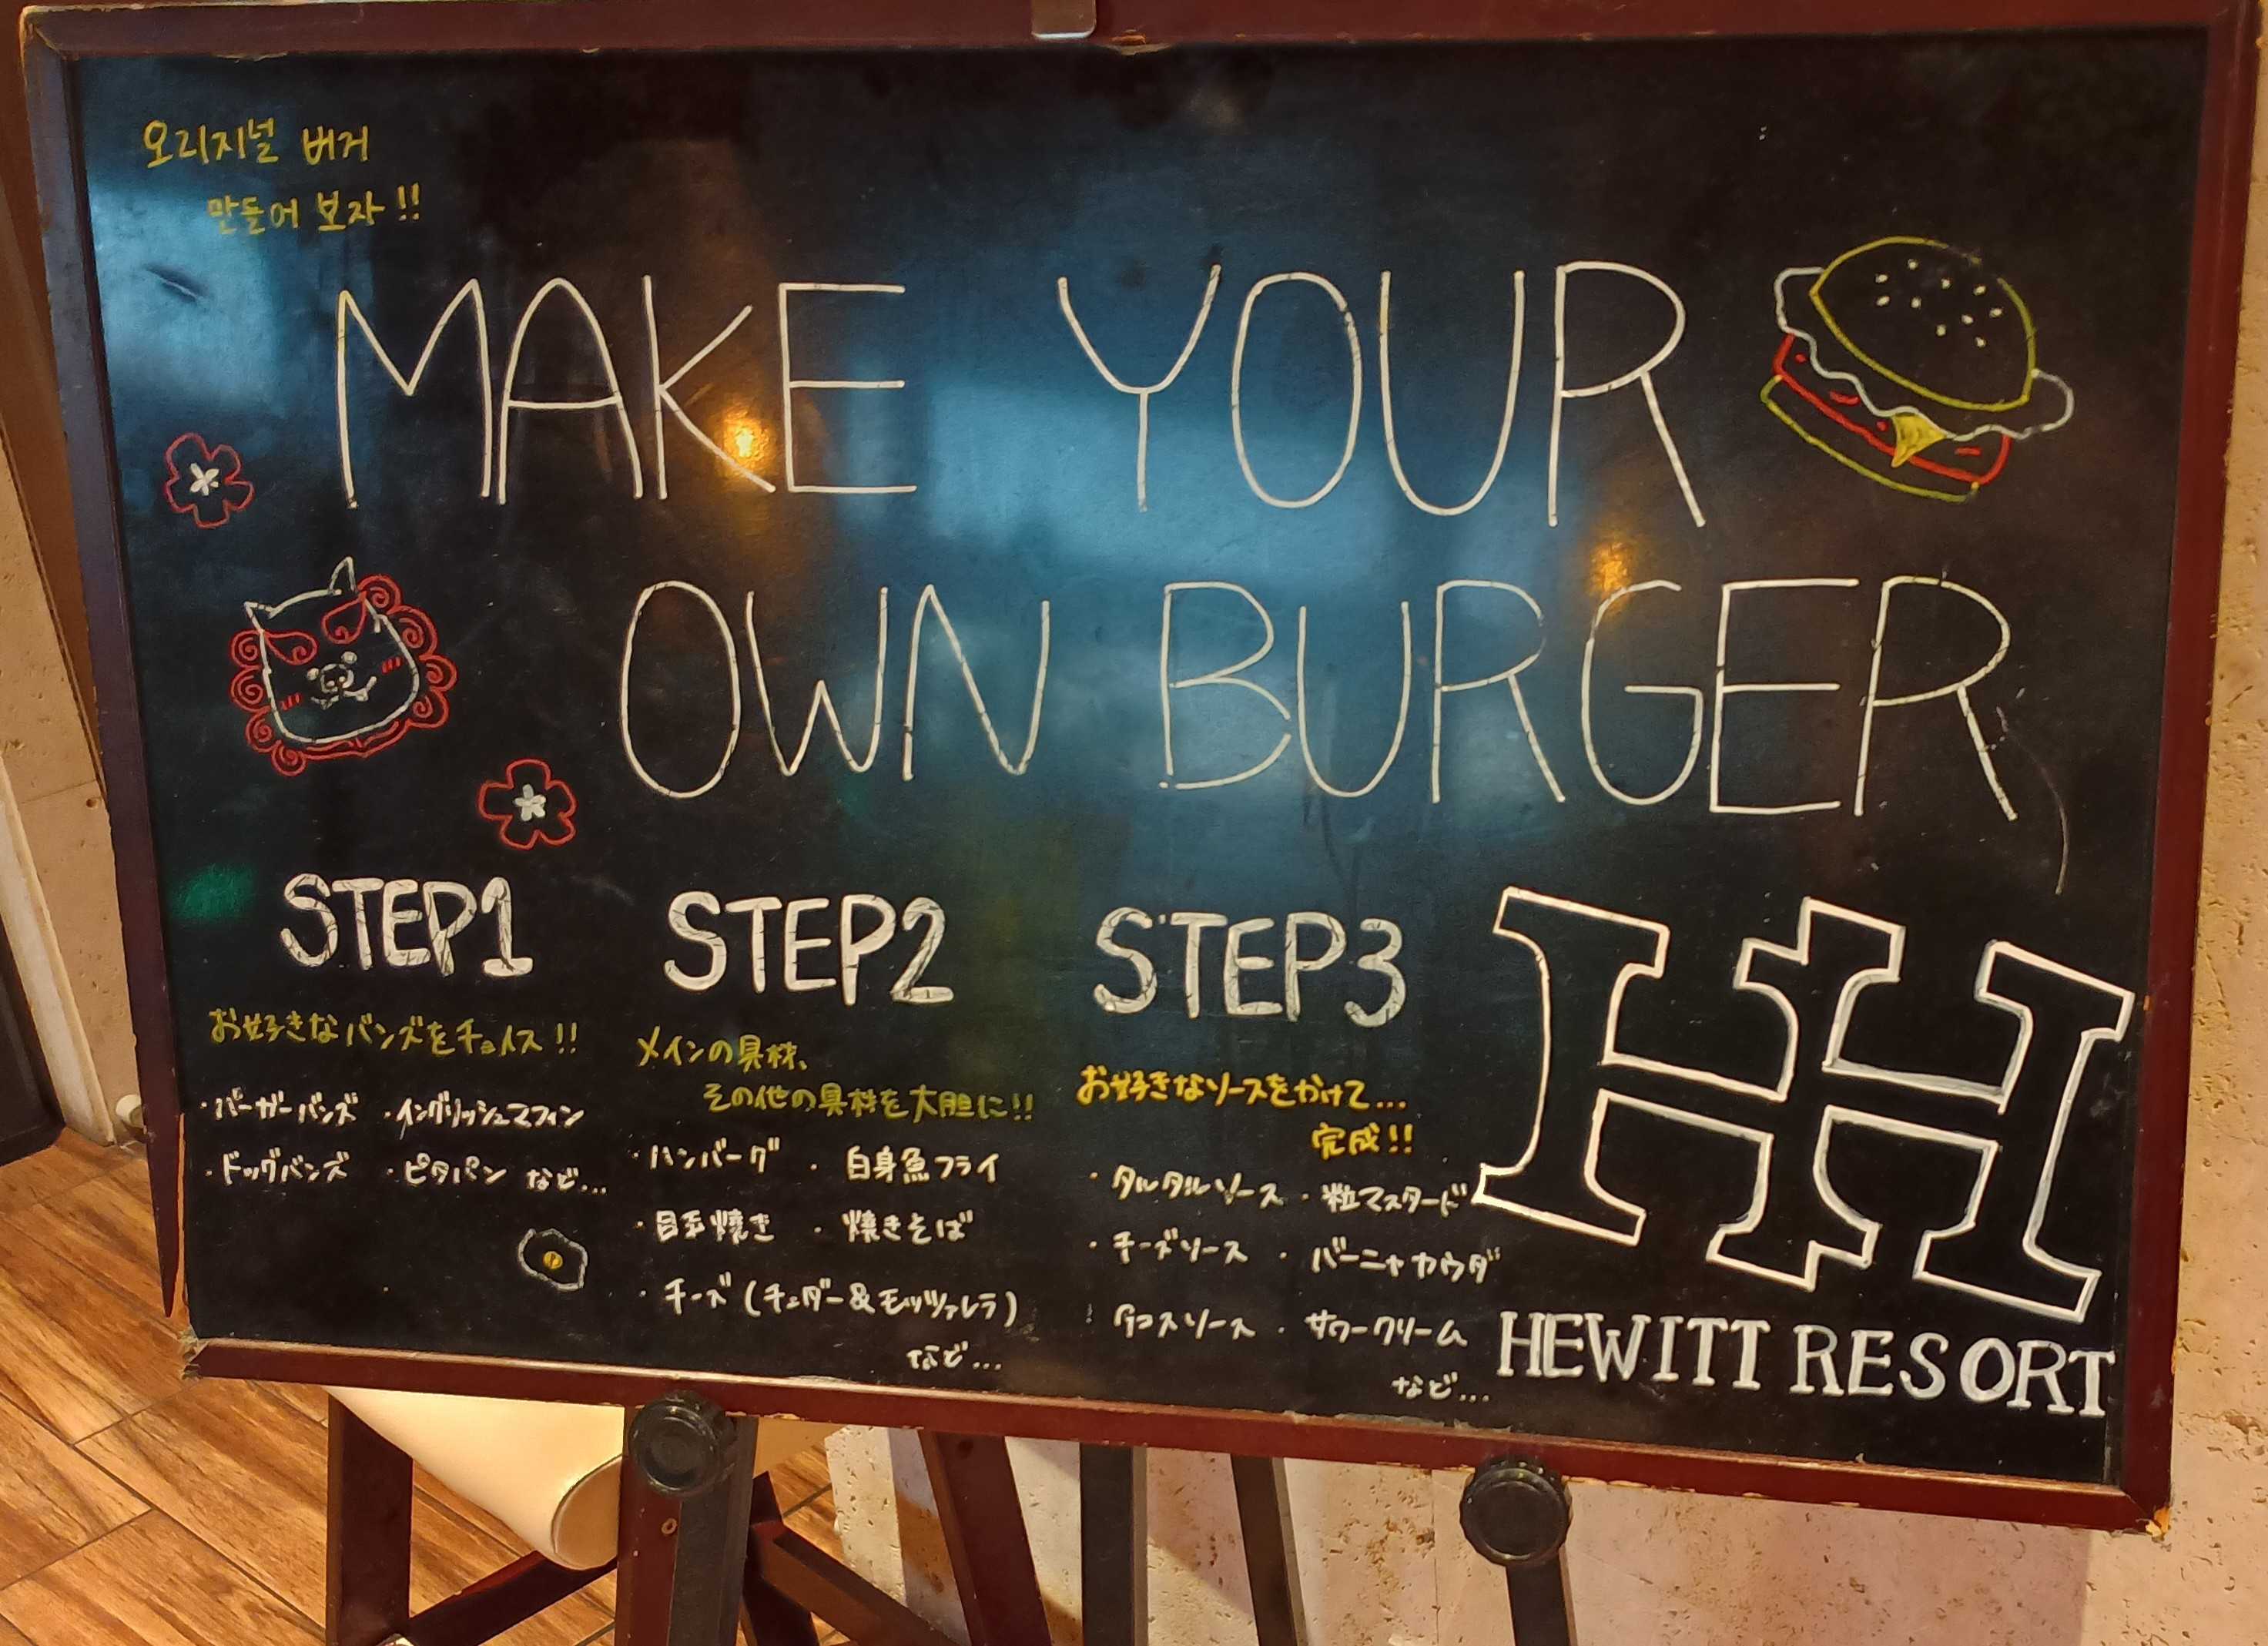 오리지널 버거
만들어 보자!!
MAKE YOUR
OWN BURGER
STEP1
お好きなバンズをチョイス!!
・バーガーバンズ ・イングリッシュマフィン
・ドッグバンズ ・ピタパン など...
STEP2
メインの具材、
その他の具材を大胆に!!
・ハンバーグ ・白身魚フライ
・目玉焼き ・焼きそば
・チーズ(チェダー&モッツァレラ)
など...
STEP3
お好きなソースをかけて...
完成!!
・タルタルソース ・粒マスタード
・チーズソース ・バーニャカウダ
・タコスソース ・サワークリーム
など...
HH
HEWITT RESORT